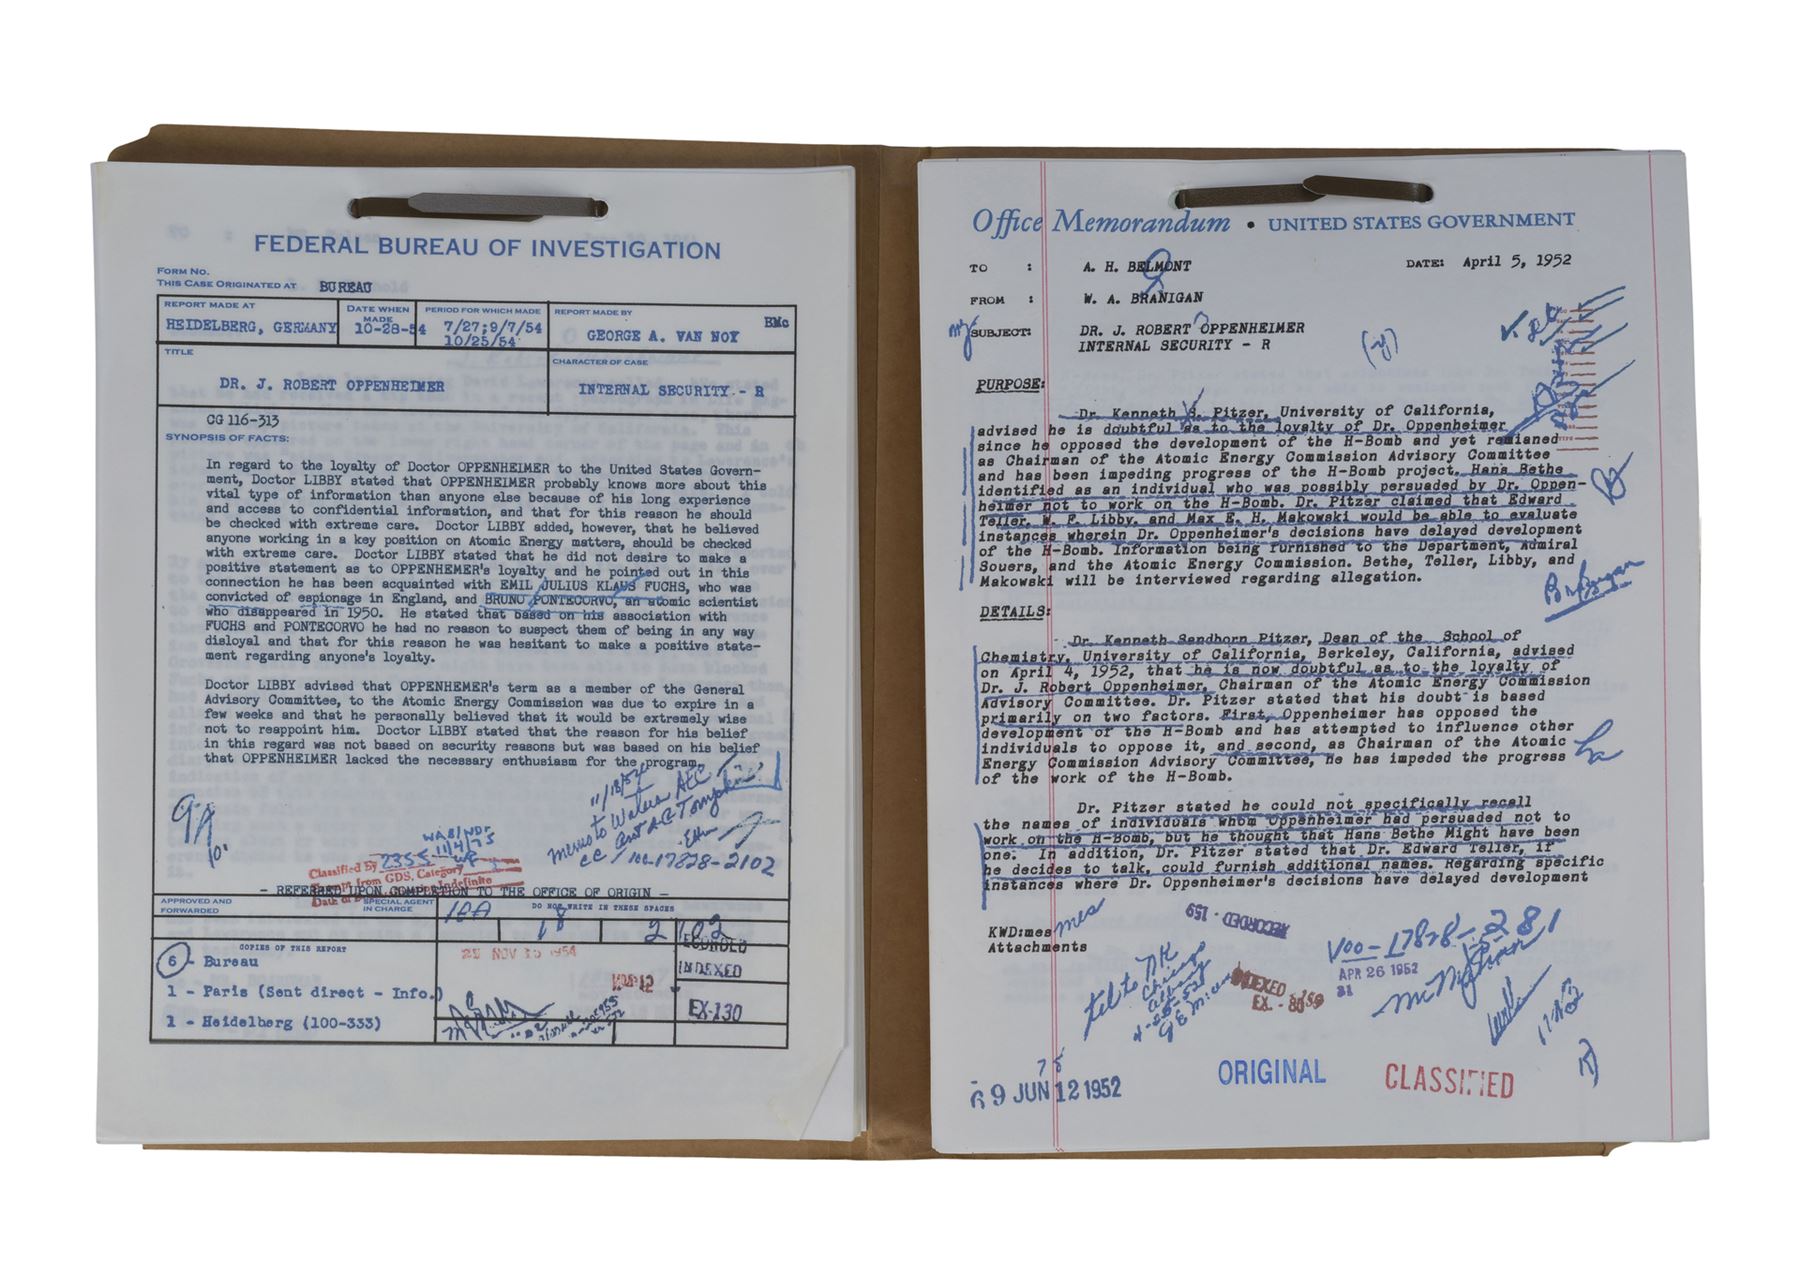 FEDERAL BUREAU OF INVESTIGATION
FORM NO.
THIS CASE ORIGINATED AT BUREAU
REPORT MADE AT
HEIDELBERG, GERMANY
DATE WHEN MADE
10-28-54
PERIOD FOR WHICH MADE
7/27;9/7/54
10/25/54
REPORT MADE BY
GEORGE A. VAN NOY
BMc
TITLE
DR. J. ROBERT OPPENHEIMER
CHARACTER OF CASE
INTERNAL SECURITY - R
CG 116-313
SYNOPSIS OF FACTS:
In regard to the loyalty of Doctor OPPENHEIMER to the United States Govern-
ment, Doctor LIBBY stated that OPPENHEIMER probably knows more about this
vital type of information than anyone else because of his long experience
and access to confidential information, and that for this reason he should
be checked with extreme care. Doctor LIBBY added, however, that he believed
anyone working in a key position on Atomic Energy matters, should be checked
with extreme care. Doctor LIBBY stated that he did not desire to make a
positive statement as to OPPENHEIMER's loyalty and he pointed out in this
connection he has been acquainted with EMIL JULIUS KLAUS FUCHS, who was
convicted of espionage in England, and BRUNO PONTECORVO, an atomic scientist
who disappeared in 1950. He stated that based on his association with
FUCHS and PONTECORVO he had no reason to suspect them of being in any way
disloyal and that for this reason he was hesitant to make a positive state-
ment regarding anyone's loyalty.
Doctor LIBBY advised that OPPENHEMER's term as a member of the General
Advisory Committee, to the Atomic Energy Commission was due to expire in a
few weeks and that he personally believed that it would be extremely wise
not to reappoint him. Doctor LIBBY stated that the reason for his belief
in this regard was not based on security reasons but was based on his belief
that OPPENHEIMER lacked the necessary enthusiasm for the program.
11/18/54
Memo to AEC
cc 100-17828-2102
11/4/75
Classified by 2355
Exempt from GDS, Category
Date of Indefinite
- REFERRED UPON COMPLETION TO THE OFFICE OF ORIGIN -
APPROVED AND
FORWARDED
SPECIAL AGENT
IN CHARGE
DO NOT WRITE IN THESE SPACES
COPIES OF THIS REPORT
6 - Bureau
1 - Paris (Sent direct - Info.)
1 - Heidelberg (100-333)
RECORDED
INDEXED
EX-130
Office Memorandum • UNITED STATES GOVERNMENT
TO : A. H. BELMONT
DATE: April 5, 1952
FROM : W. A. BRANIGAN
SUBJECT: DR. J. ROBERT OPPENHEIMER
INTERNAL SECURITY - R
PURPOSE:
Dr. Kenneth S. Pitzer, University of California,
advised he is doubtful as to the loyalty of Dr. Oppenheimer
since he opposed the development of the H-Bomb and yet remianed
as Chairman of the Atomic Energy Commission Advisory Committee
and has been impeding progress of the H-Bomb project. Hans Bethe
identified as an individual who was possibly persuaded by Dr. Oppen-
heimer not to work on the H-Bomb. Dr. Pitzer claimed that Edward
Teller, W. F. Libby, and Max E. H. Makowski would be able to evaluate
instances wherein Dr. Oppenheimer's decisions have delayed development
of the H-Bomb. Information being furnished to the Department, Admiral
Souers, and the Atomic Energy Commission. Bethe, Teller, Libby, and
Makowski will be interviewed regarding allegation.
DETAILS:
Dr. Kenneth Sandhorn Pitzer, Dean of the School of
Chemistry, University of California, Berkeley, California, advised
on April 4, 1952, that he is now doubtful as to the loyalty of
Dr. J. Robert Oppenheimer, Chairman of the Atomic Energy Commission
Advisory Committee. Dr. Pitzer stated that his doubt is based
primarily on two factors. First, Oppenheimer has opposed the
development of the H-Bomb and has attempted to influence other
individuals to oppose it, and second, as Chairman of the Atomic
Energy Commission Advisory Committee, he has impeded the progress
of the work of the H-Bomb.
Dr. Pitzer stated he could not specifically recall
the names of individuals whom Oppenheimer had persuaded not to
work on the H-Bomb, but he thought that Hans Bethe Might have been
one. In addition, Dr. Pitzer stated that Dr. Edward Teller, if
he decides to talk, could furnish additional names. Regarding specific
instances where Dr. Oppenheimer's decisions have delayed development
KWD:mes
Attachments
RECORDED - 159
INDEXED
EX. -
APR 26 1952
31
69 JUN 12 1952
ORIGINAL
CLASSIFIED